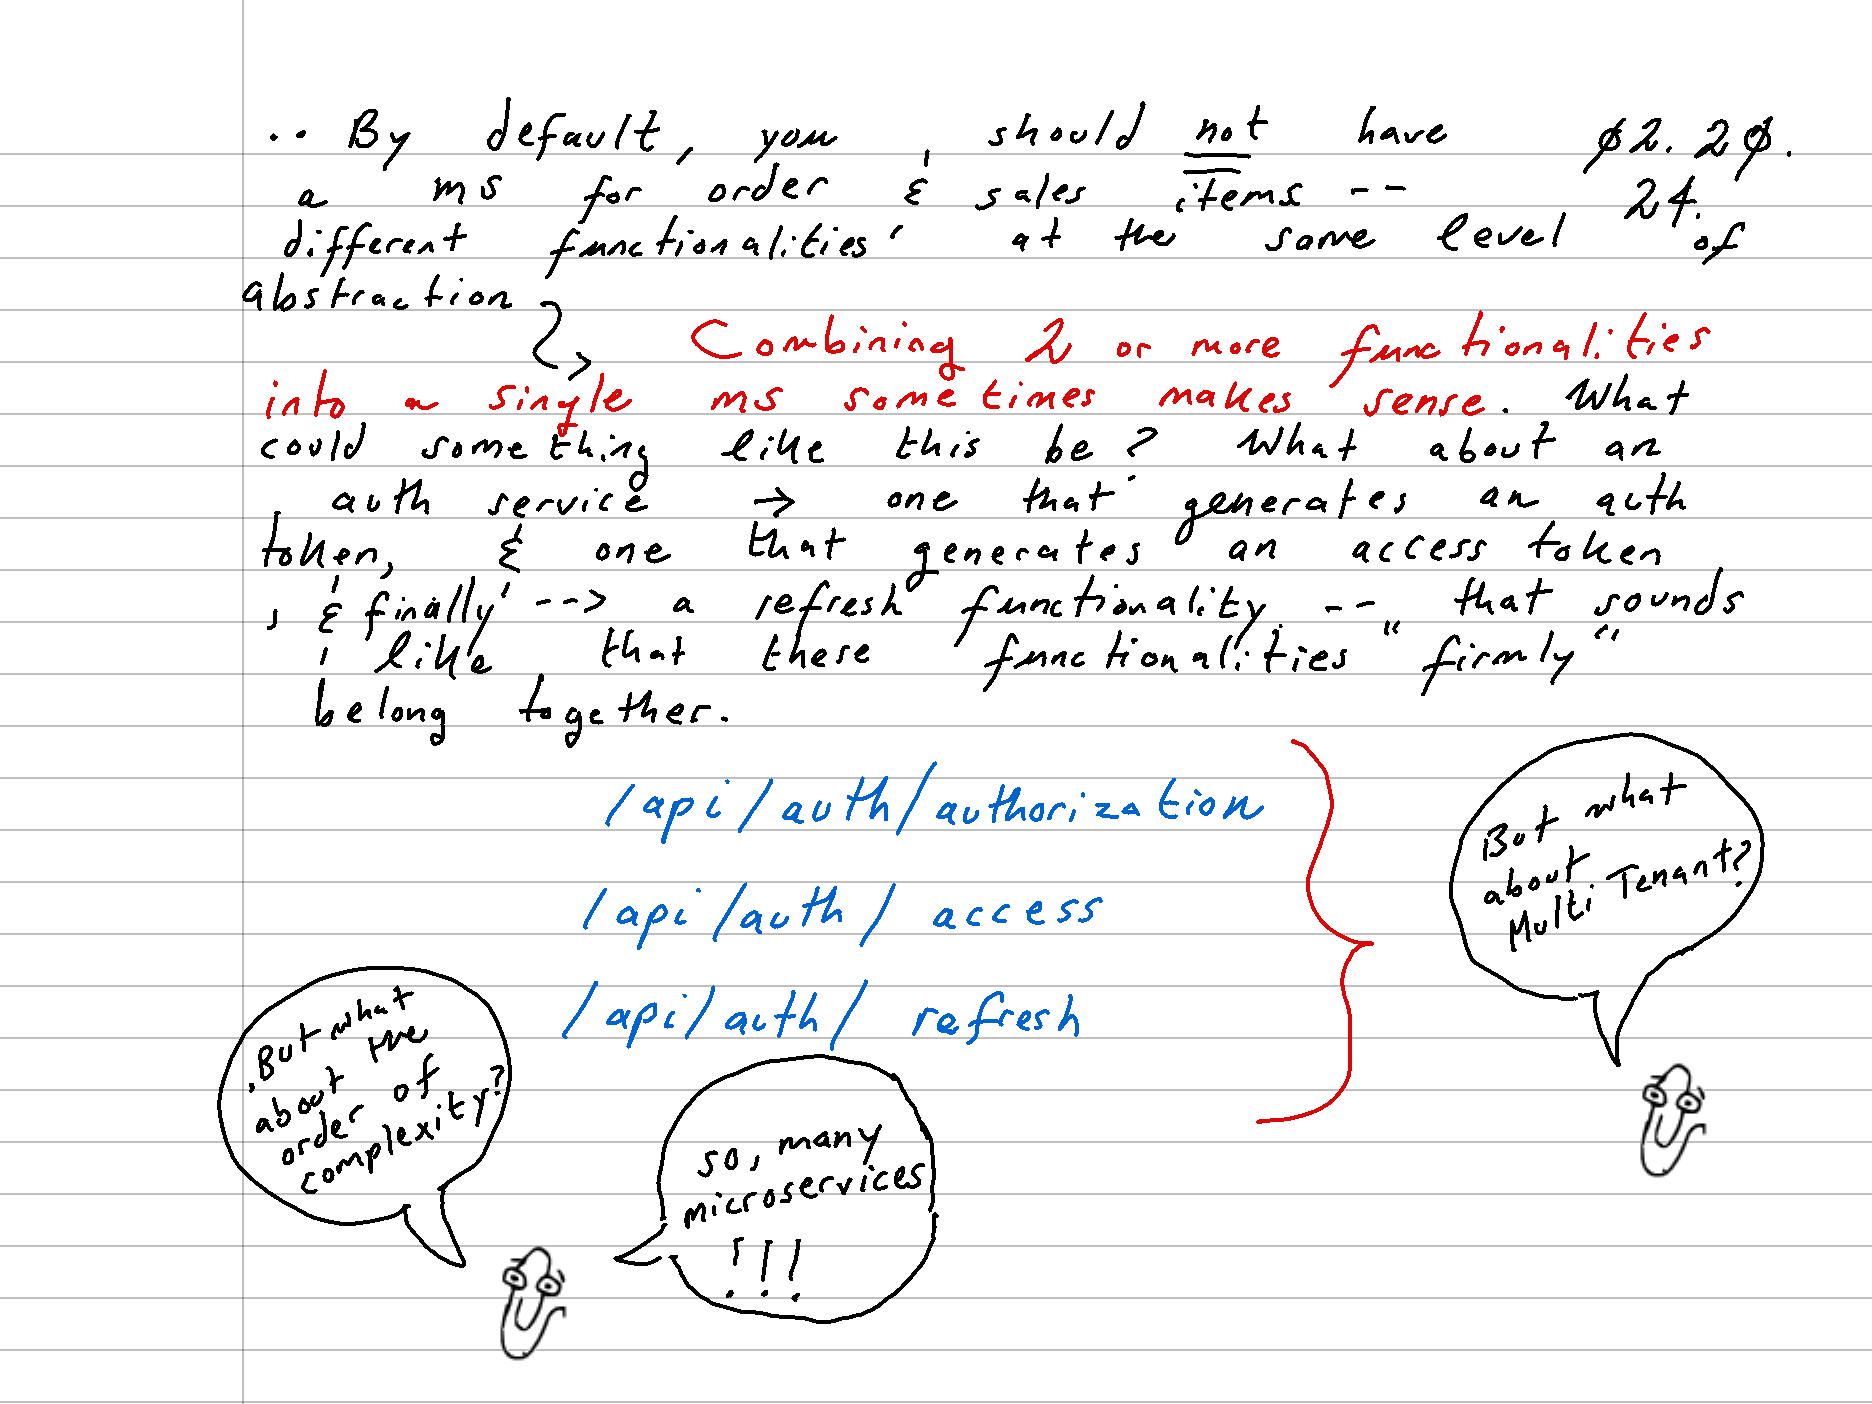 .. By default, you should not have 02.20.
a ms for order & sales items -- 24.
different functionalities at the same level of
abstraction
Combining 2 or more functionalities
into a single ms sometimes makes sense. What
could something like this be? What about an
auth service → one that generates an auth
token, & one that generates an access token
, & finally --> a refresh functionality -- that sounds
like that these functionalities "firmly"
belong together.
/api/auth/authorization
/api/auth/access
/api/auth/refresh
But what
about
Multi Tenant?
But what
about the
order of
complexity?
so, many
microservices
!!!